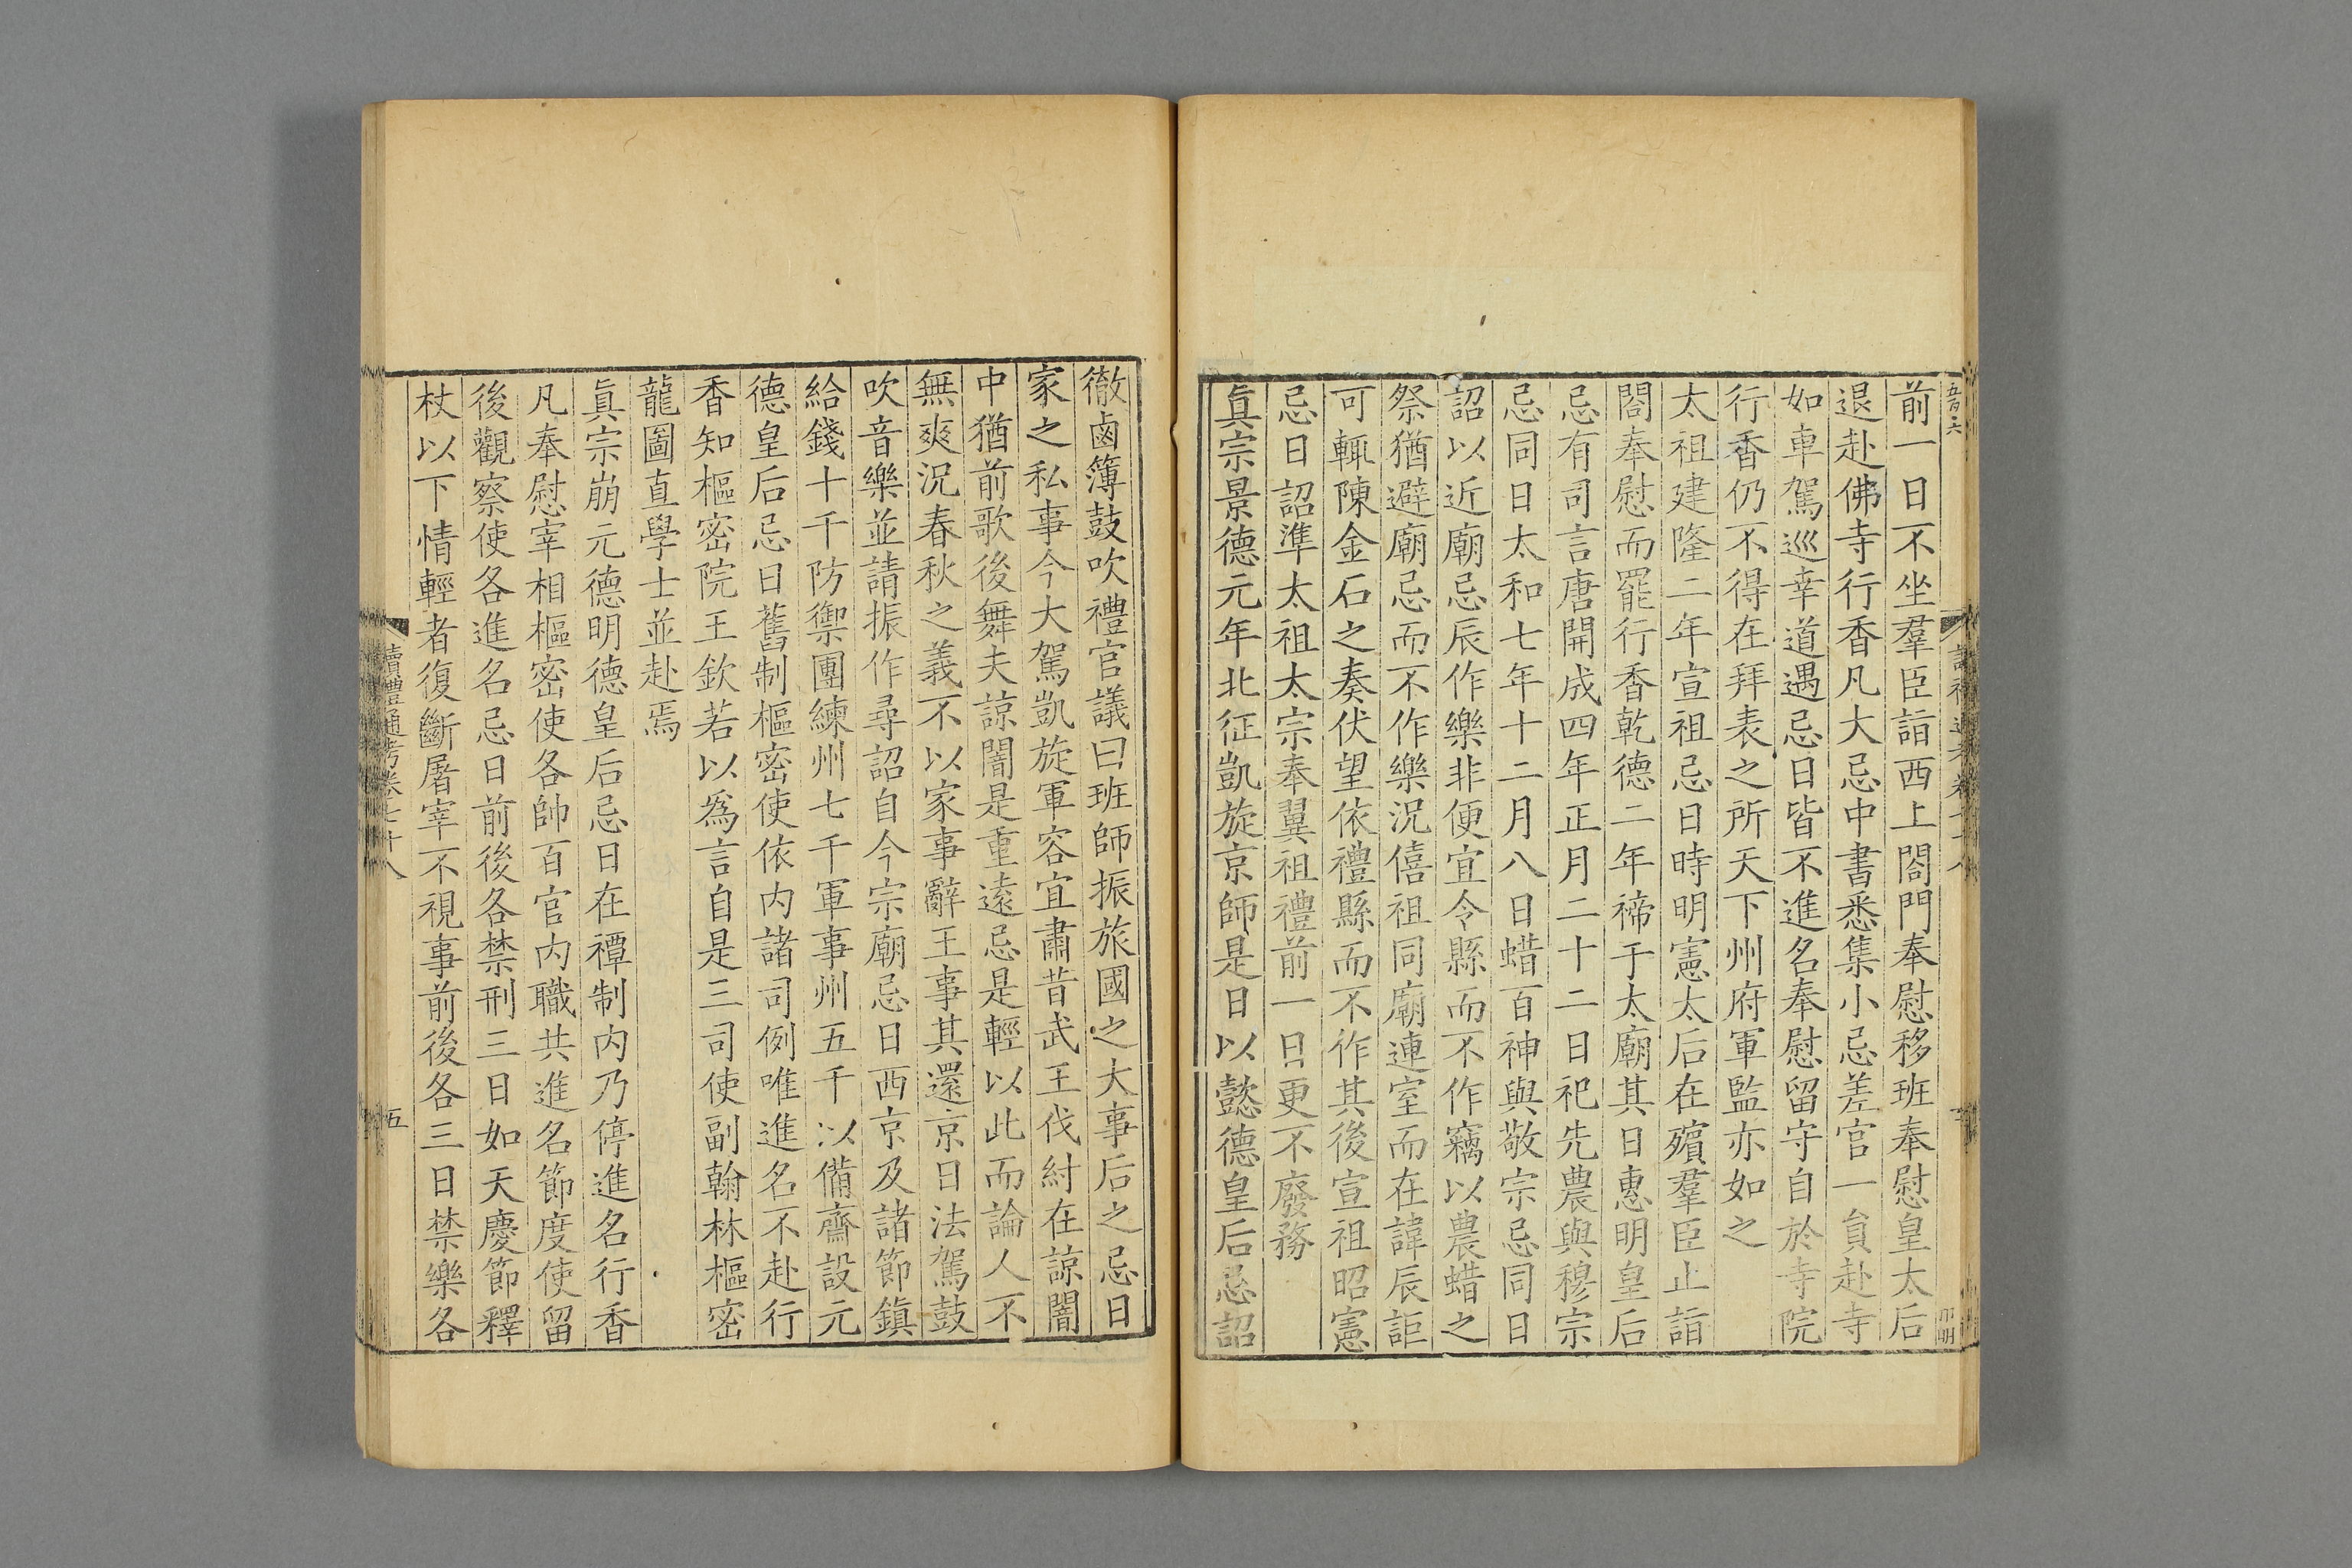 五百六
前一日不坐羣臣詣西上閤門奉慰移班奉慰皇太后
退赴佛寺行香凡大忌中書悉集小忌差官一員赴寺
如車駕巡幸道遇忌日皆不進名奉慰留守自於寺院
行香仍不得在拜表之所天下州府軍監亦如之
太祖建隆二年宣祖忌日時明憲太后在殯羣臣止詣
閤奉慰而罷行香乾德二年禘于太廟其日惠明皇后
忌有司言唐開成四年正月二十二日祀先農與穆宗
忌同日太和七年十二月八日蜡百神與敬宗忌同日
詔以近廟忌辰作樂非便宜令縣而不作竊以農蜡之
祭猶避廟忌而不作樂況僖祖同廟連室而在諱辰詎
可輒陳金石之奏伏望依禮縣而不作其後宣祖昭憲
忌日詔準太祖太宗奉翼祖禮前一日更不廢務
眞宗景德元年北征凱旋京師是日以懿德皇后忌詔
徹鹵簿鼓吹禮官議曰班師振旅國之大事后之忌日
家之私事今大駕凱旋軍容宜肅昔武王伐紂在諒闇
中猶前歌後舞夫諒闇是重遠忌是輕以此而論人不
無爽況春秋之義不以家事辭王事其還京日法駕鼓
吹音樂並請振作尋詔自今宗廟忌日西京及諸節鎮
給錢十千防禦團練州七千軍事州五千以備齋設元
德皇后忌日舊制樞密使依內諸司例唯進名不赴行
香知樞密院王欽若以爲言自是三司使副翰林樞密
龍圖直學士並赴焉
眞宗崩元德明德皇后忌日在禫制內乃停進名行香
凡奉慰宰相樞密使各帥百官內職共進名節度使留
後觀察使各進名忌日前後各禁刑三日如天慶節釋
杖以下情輕者復斷屠宰不視事前後各三日禁樂各
讀禮通考卷七十八
五